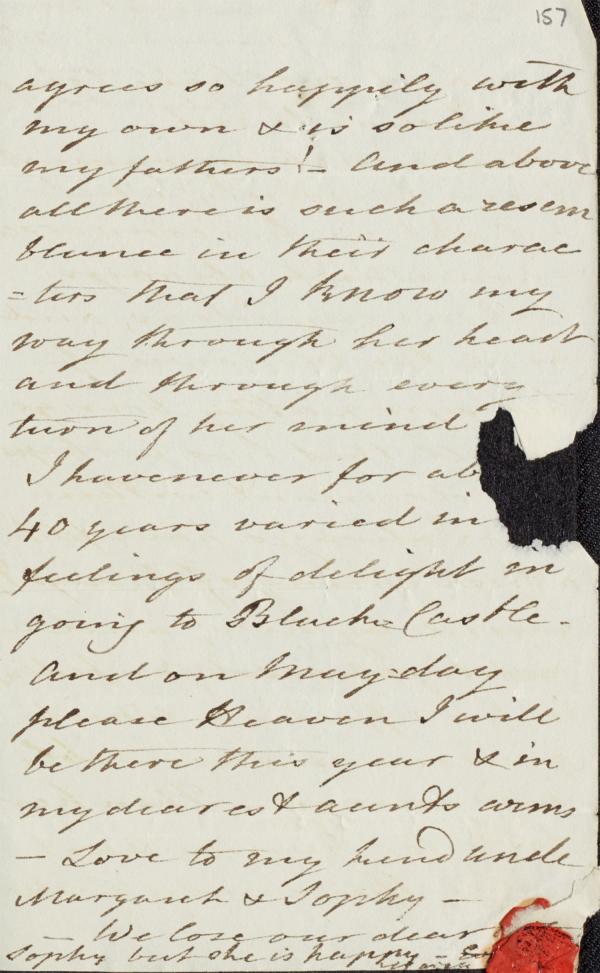 157
agrees so happily with
my own & is so like
my fathers! – And above
all there is such a resem
blance in their charac
=ters that I know my
way through her heart
and through every
turn of her mind
I have never for ab
40 years varied in
feelings of delight in
going to Black-Castle –
And on May-day
please Heaven I will
be there this year & in
my dearest aunts arms
– Love to my kind uncle
Margaret & Sophy –
– We lose our dear
Sophy but she is happy –